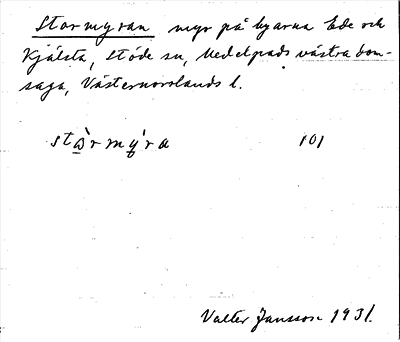 Stormyran myr på byarna Ede och
Kjälsta, Stöde sn, Medelpads västra dom-
saga, Västernorrlands l.
stὼrmy̌ra 101
Valter Jansson 1931.